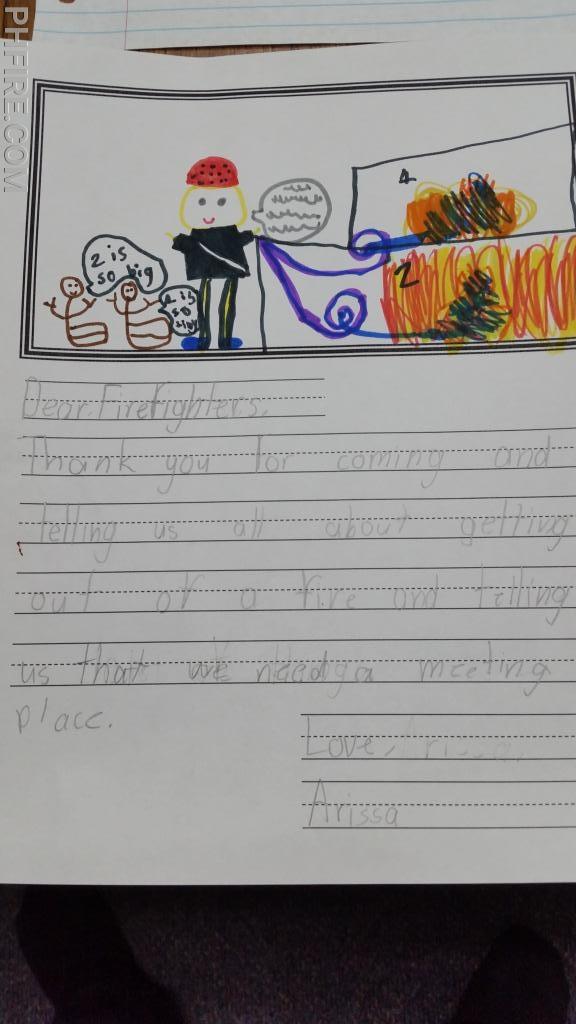 PHFIRE.COM
4
2
2 is
so big
2 is
so
Dear Firefighters,
Thank you for coming and
telling us all about getting
out of a fire and telling
us that we need a meeting
place.
Love, Arissa
Arissa